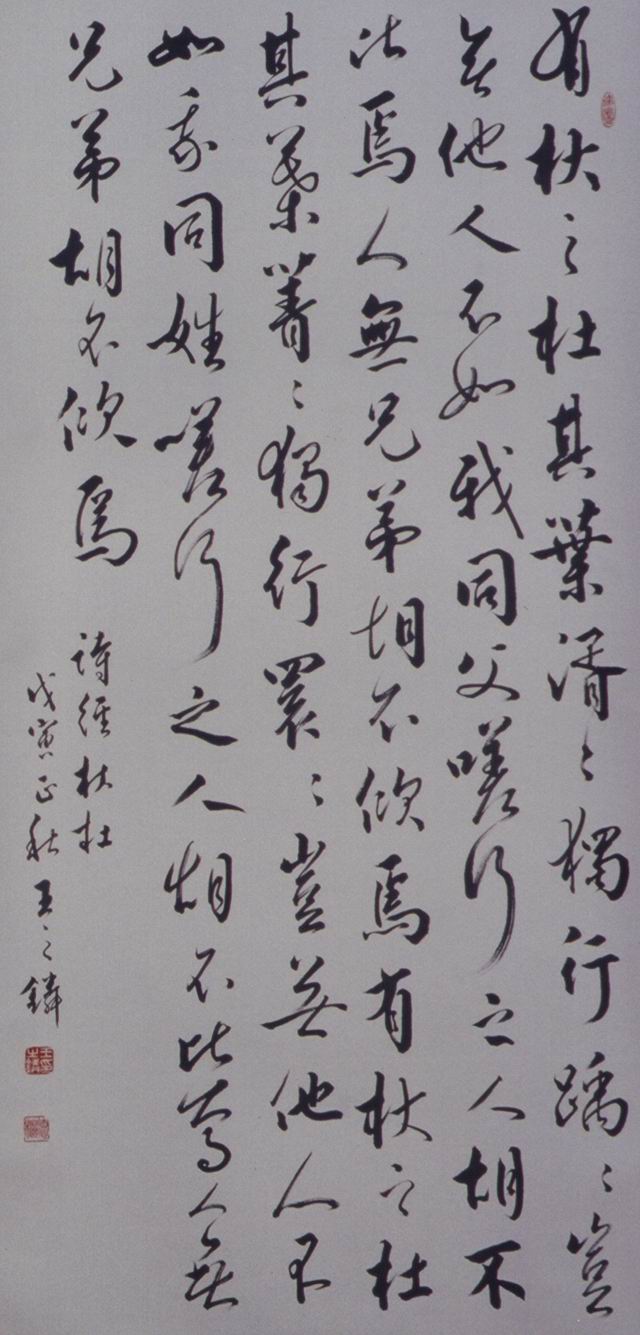 有杕之杜其葉湑〻獨行踽〻豈
無他人不如我同父嗟行之人胡不
比焉人無兄弟胡不佽焉有杕之杜
其葉菁〻獨行睘〻豈無他人不
如我同姓嗟行之人胡不比焉人無
兄弟胡不佽焉
詩經杕杜
戊寅正秋王之鏻